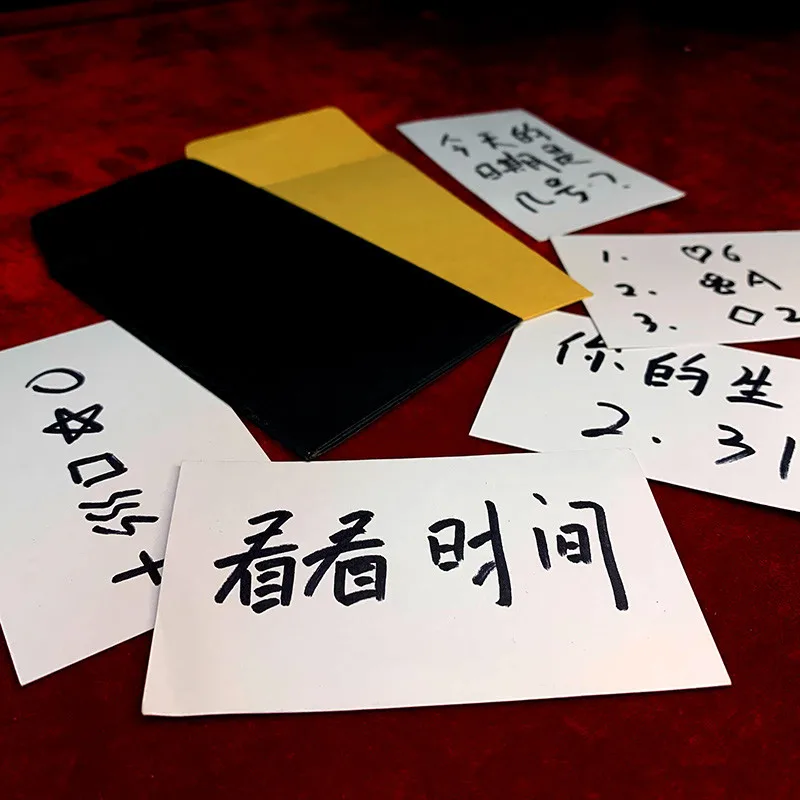 今天的
日期是
几号?
1. ♡6
2. ♣A
3. ◇2
你的生
2.31
○
☆
□
+
看看时间